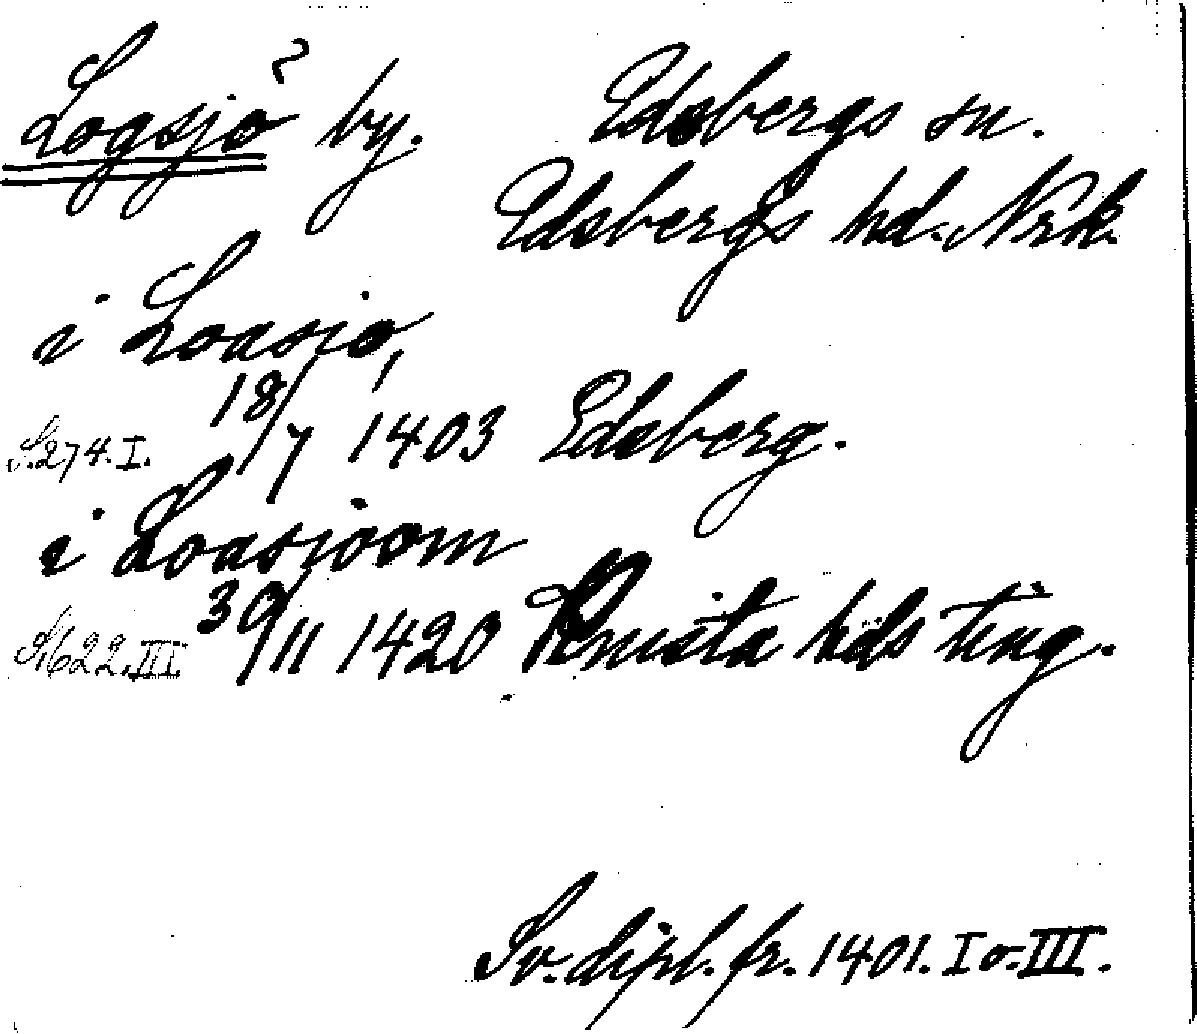 Logsjö? by. Edsbergs sn.
Edsbergs hd. Nrk.
i Loasio,
S. 274. I. 18/7 1403 Edsberg.
i Loasioom
S. 622. III. 30/11 1420 Knista hds ting.
Sv. dipl. fr. 1401. I o. III.